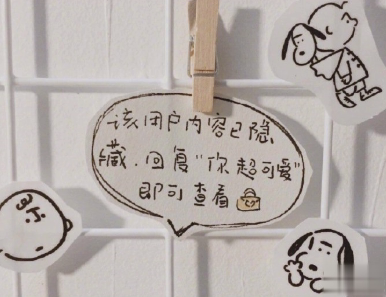 该用户内容已隐
藏.回复“你超可爱”
即可查看